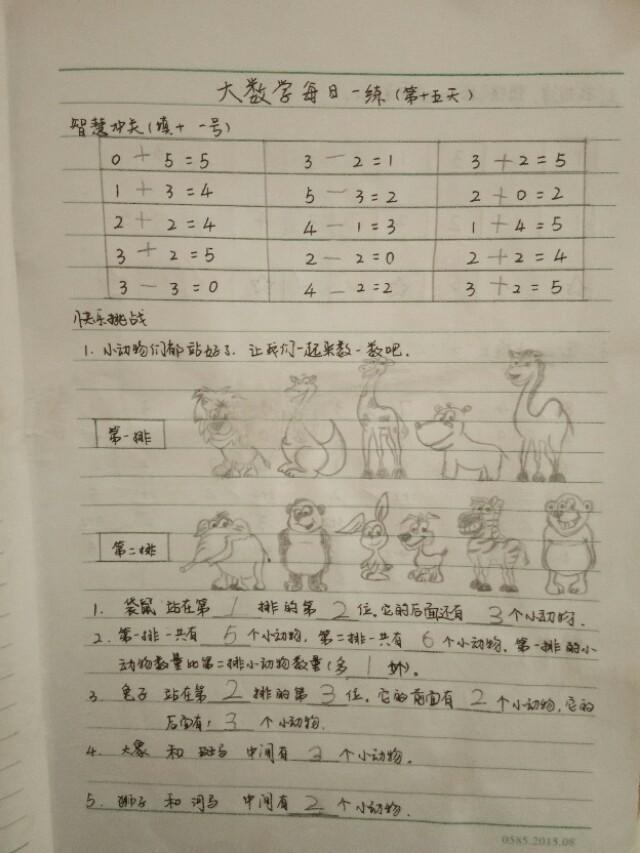 大数学每日一练(第十五天)
智慧冲关(填+ 一号)
0 + 5 = 5 3 - 2 = 1 3 + 2 = 5
1 + 3 = 4 5 - 3 = 2 2 + 0 = 2
2 + 2 = 4 4 - 1 = 3 1 + 4 = 5
3 + 2 = 5 2 - 2 = 0 2 + 2 = 4
3 - 3 = 0 4 - 2 = 2 3 + 2 = 5
快乐挑战
1. 小动物们都站好了. 让我们一起来数一数吧.
第一排
第二排
1. 袋鼠 站在第 1 排的第 2 位. 它的后面还有 3 个小动物.
2. 第一排一共有 5 个小动物, 第二排一共有 6 个小动物. 第一排的小
动物数量比第二排小动物数量(多 1 少).
3. 兔子 站在第 2 排的第 3 位. 它的前面有 2 个小动物, 它的
后面有: 3 个小动物.
4. 大象 和 斑马 中间有 3 个小动物.
5. 狮子 和 河马 中间有 2 个小动物.
0585.2015.08